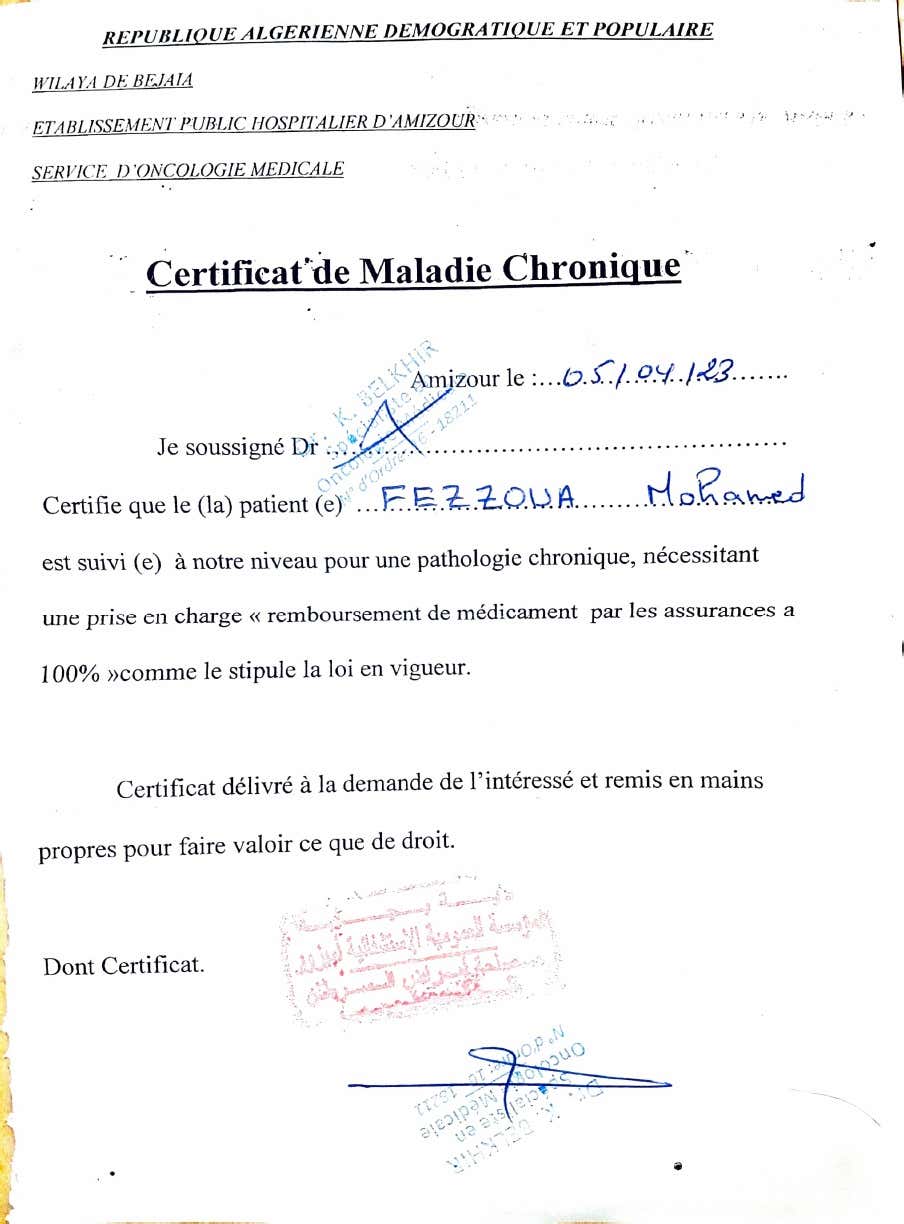 REPUBLIQUE ALGERIENNE DEMOGRATIQUE ET POPULAIRE
WILAYA DE BEJAIA
ETABLISSEMENT PUBLIC HOSPITALIER D'AMIZOUR
SERVICE D'ONCOLOGIE MEDICALE
Certificat de Maladie Chronique
Amizour le :...05/04/23.......
Dr. K. BELKHIR
Spécialiste en
Oncologie Médicale
N° d'Ordre: 16 - 18211
Je soussigné Dr :......................................................
Certifie que le (la) patient (e) ...FEZZOUA.........Mohamed
est suivi (e) à notre niveau pour une pathologie chronique, nécessitant
une prise en charge « remboursement de médicament par les assurances a
100% »comme le stipule la loi en vigueur.
Certificat délivré à la demande de l'intéressé et remis en mains
propres pour faire valoir ce que de droit.
Dont Certificat.
المؤسسة العمومية الإستشفائية أميزور
Dr. K. BELKHIR
Spécialiste en
Oncologie Médicale
N° d'Ordre: 16 - 18211